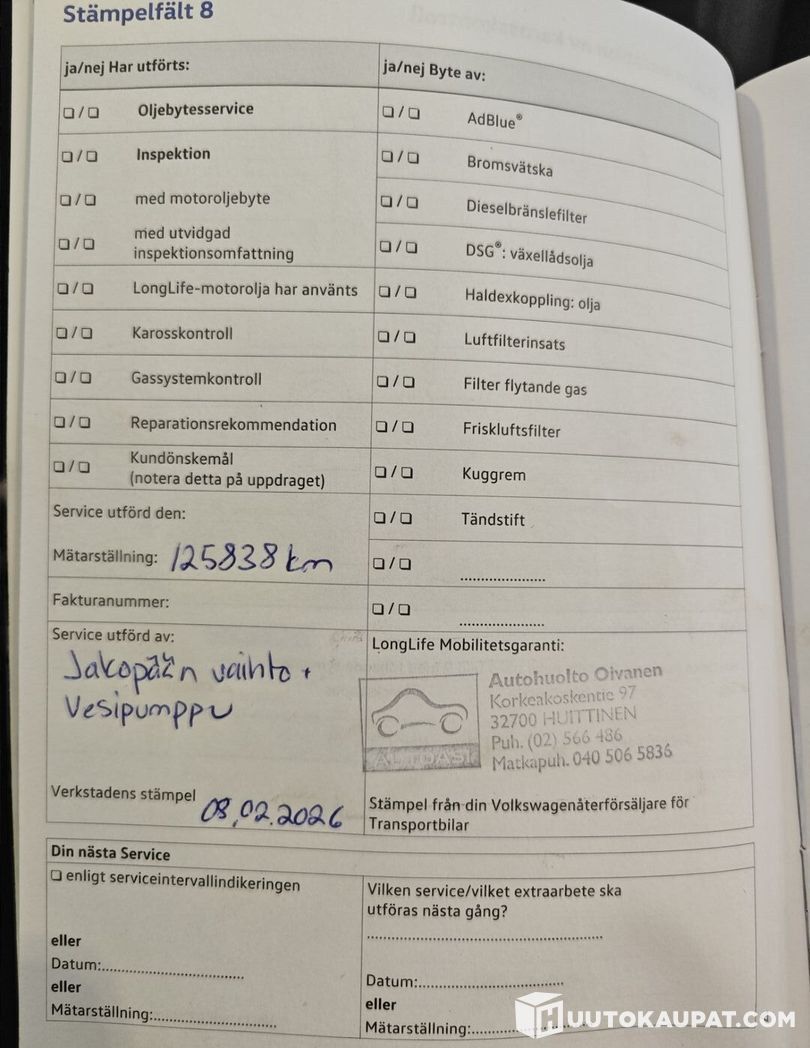 Stämpelfält 8
ja/nej Har utförts:
❏ / ❏ Oljebytesservice
❏ / ❏ Inspektion
❏ / ❏ med motoroljebyte
❏ / ❏ med utvidgad
inspektionsomfattning
❏ / ❏ LongLife-motorolja har använts
❏ / ❏ Karosskontroll
❏ / ❏ Gassystemkontroll
❏ / ❏ Reparationsrekommendation
❏ / ❏ Kundönskemål
(notera detta på uppdraget)
Service utförd den:
Mätarställning: 125838 km
Fakturanummer:
Service utförd av:
Jakopään vaihto +
Vesipumppu
Verkstadens stämpel 08.02.2026
ja/nej Byte av:
❏ / ❏ AdBlue®
❏ / ❏ Bromsvätska
❏ / ❏ Dieselbränslefilter
❏ / ❏ DSG®: växellådsolja
❏ / ❏ Haldexkoppling: olja
❏ / ❏ Luftfilterinsats
❏ / ❏ Filter flytande gas
❏ / ❏ Friskluftsfilter
❏ / ❏ Kuggrem
❏ / ❏ Tändstift
❏ / ❏ ....................
❏ / ❏ ....................
LongLife Mobilitetsgaranti:
AUTOASI
Autohuolto Oivanen
Korkeakoskentie 97
32700 HUITTINEN
Puh. (02) 566 486
Matkapuh. 040 506 5836
Stämpel från din Volkswagenåterförsäljare för
Transportbilar
Din nästa Service
❏ enligt serviceintervallindikeringen
eller
Datum:..............................
eller
Mätarställning:..........................
Vilken service/vilket extraarbete ska
utföras nästa gång?
..................................................
Datum:..............................
eller
Mätarställning:..........................
HUUTOKAUPAT.COM